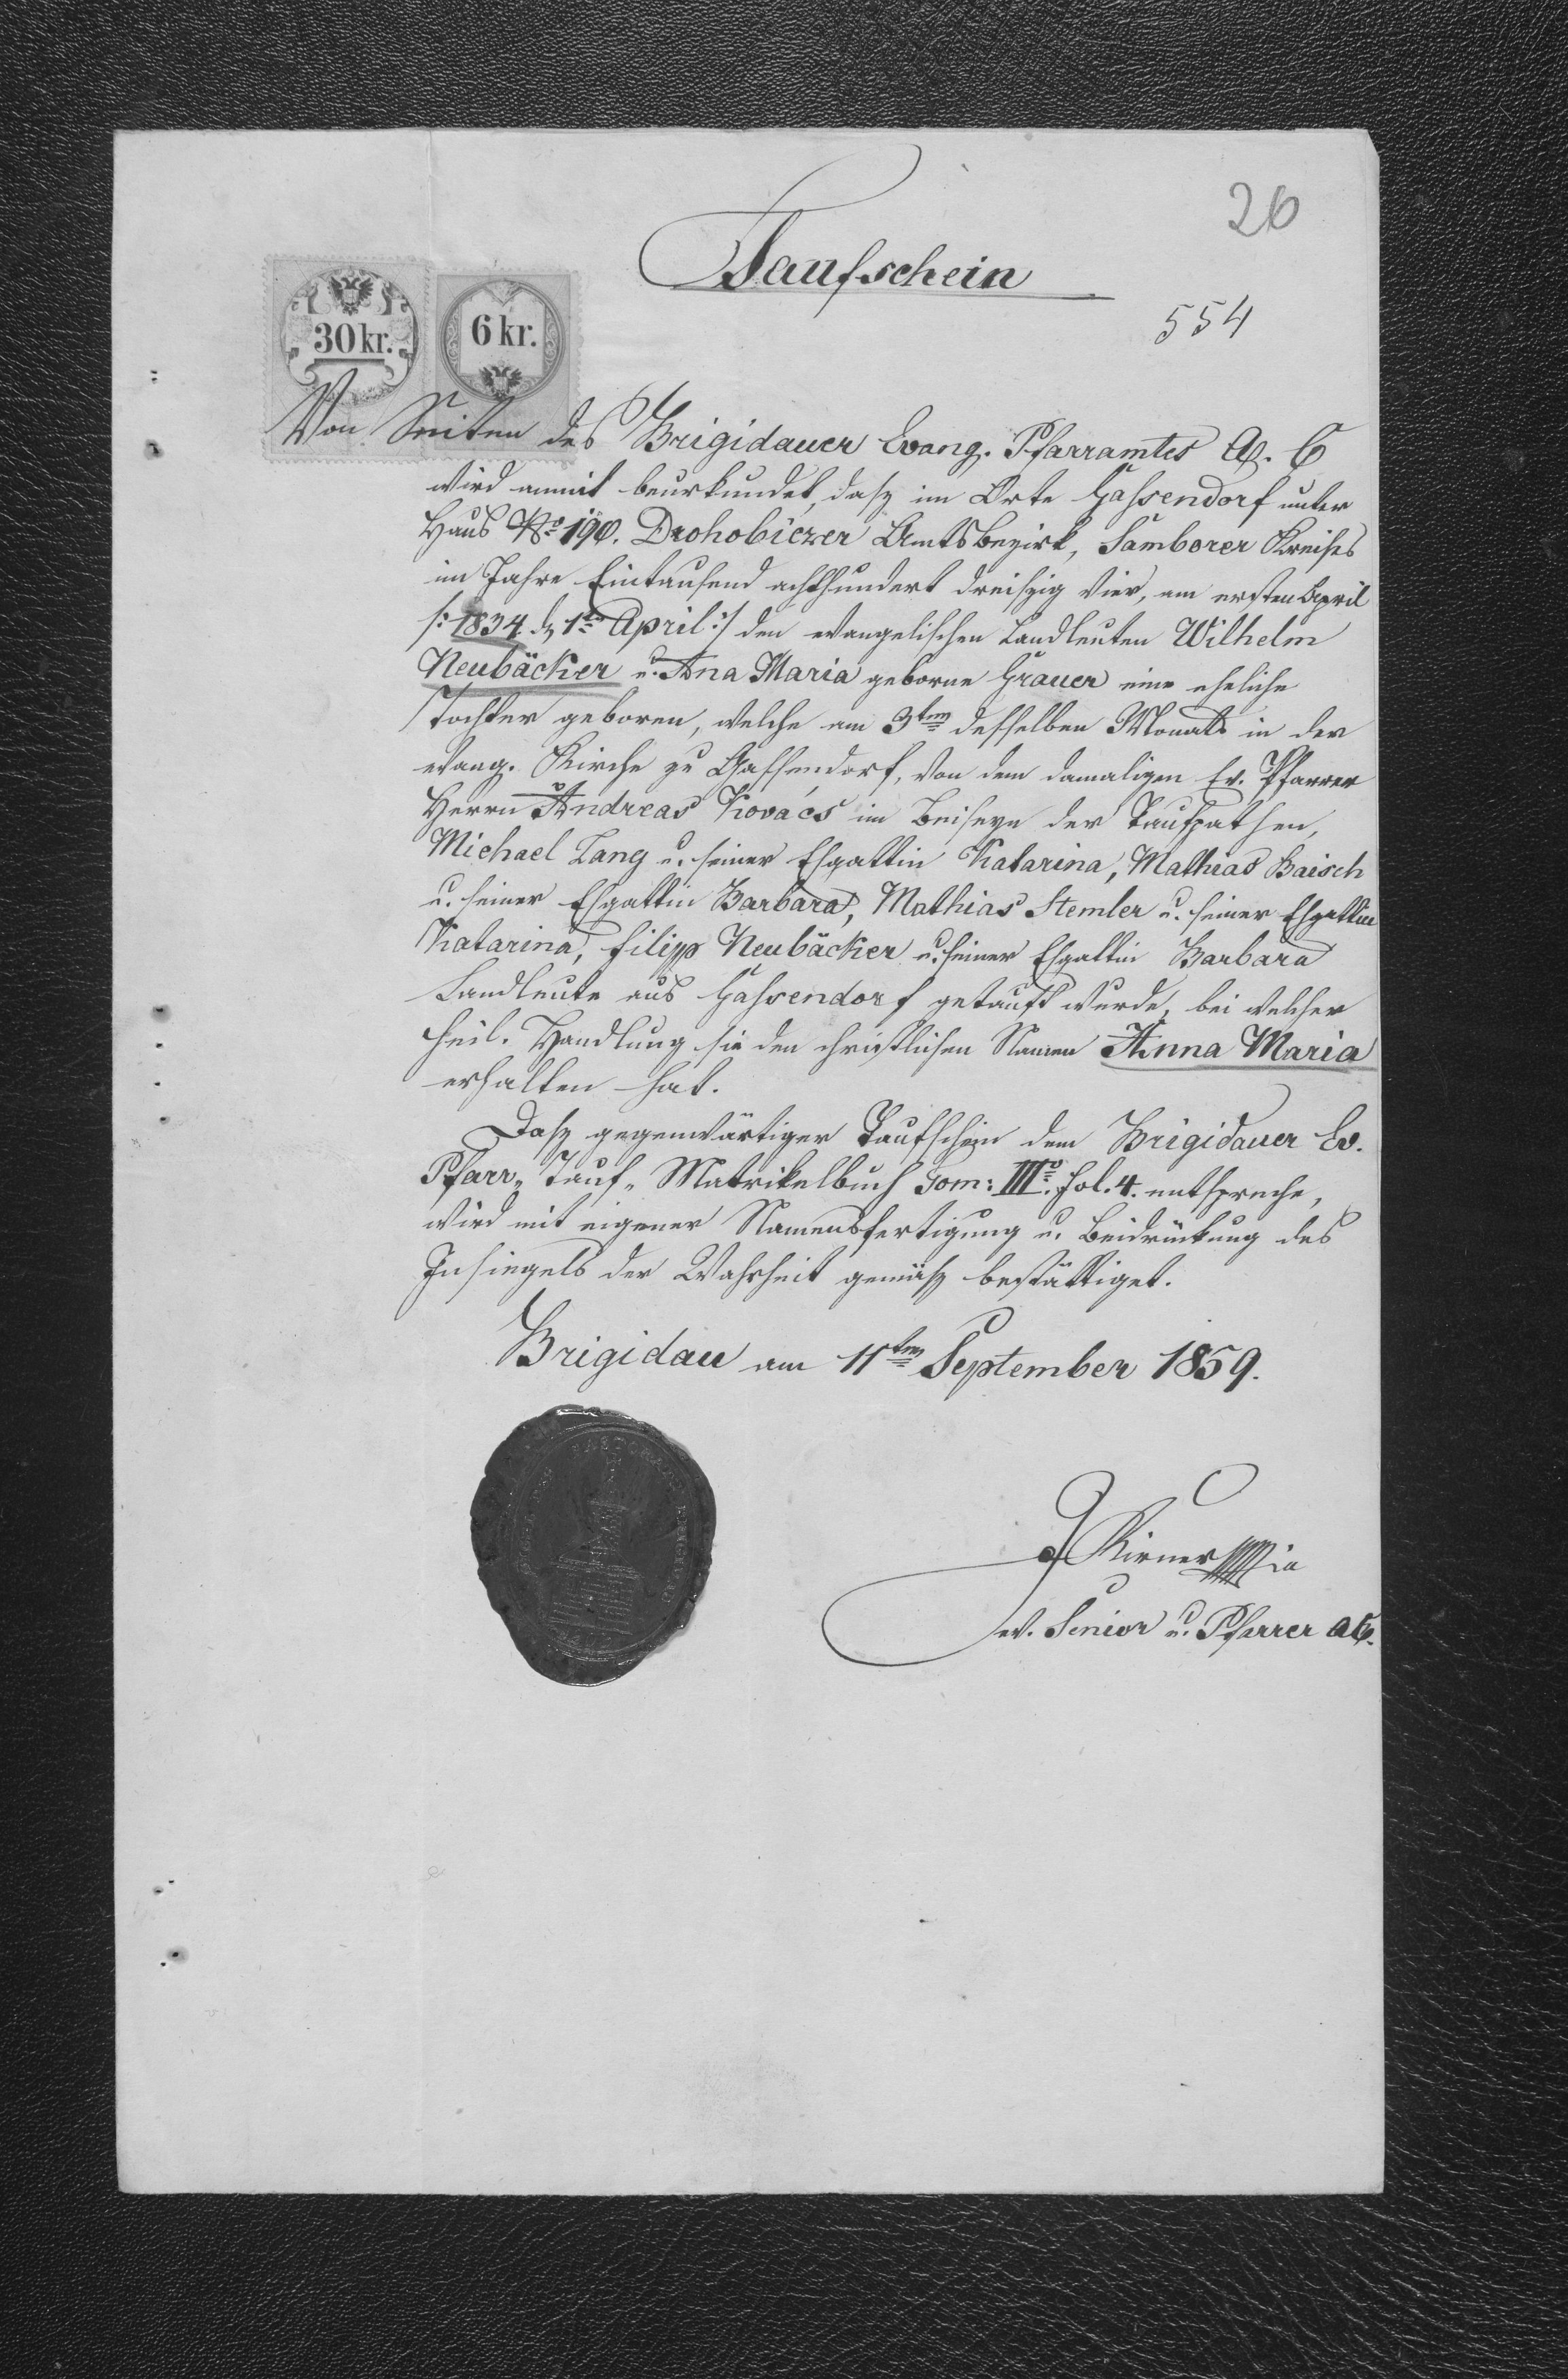 26
Taufschein
554
30 kr.
6 kr.
Von Seiten des Brigidauer Evang. Pfarramtes A. C
wird anmit beurkundet, dasz im Orte Gassendorf unter
Haus No 190. Drohobiczer Amtsbezirk, Samborer Kreises
im Jahre Eintausend achthundert dreiszig vier, am ersten April
/: 1834 d. 1ten April :/ den evangelischen Landleuten Wilhelm
Neubäcker u. Ana Maria geborne Grauer eine eheliche
Tochter geboren, welche am 3ten desselben Monats in der
evang. Kirche zu Gassendorf, von dem damaligen Ev. Pfarrer
Herrn Andreas Kovács im Beiseyn der Taufpathen,
Michael Lang u. seiner Ehgattin Katarina, Mathias Baisch
u. seiner Ehgattin Barbara, Mathias Stemler u. seiner Ehgattin
Katarina, Filipp Neubäcker u. seiner Ehgattin Barbara
Landleute aus Gassendorf getauft wurde, bei welcher
heil. Handlung sie den christlichen Namen Anna Maria
erhalten hat.
Dasz gegenwärtiger Taufschein dem Brigidauer Ev.
Pfarr- Tauf- Matrikelbuch Tom: IIIo. fol. 4. entspreche,
wird mit eigener Namensfertigung u. Beidrückung des
Insiegels der Wahrheit gemäsz bestättiget.
Brigidau am 11ten September 1859.
ev. Senior u. Pfarrer AC.